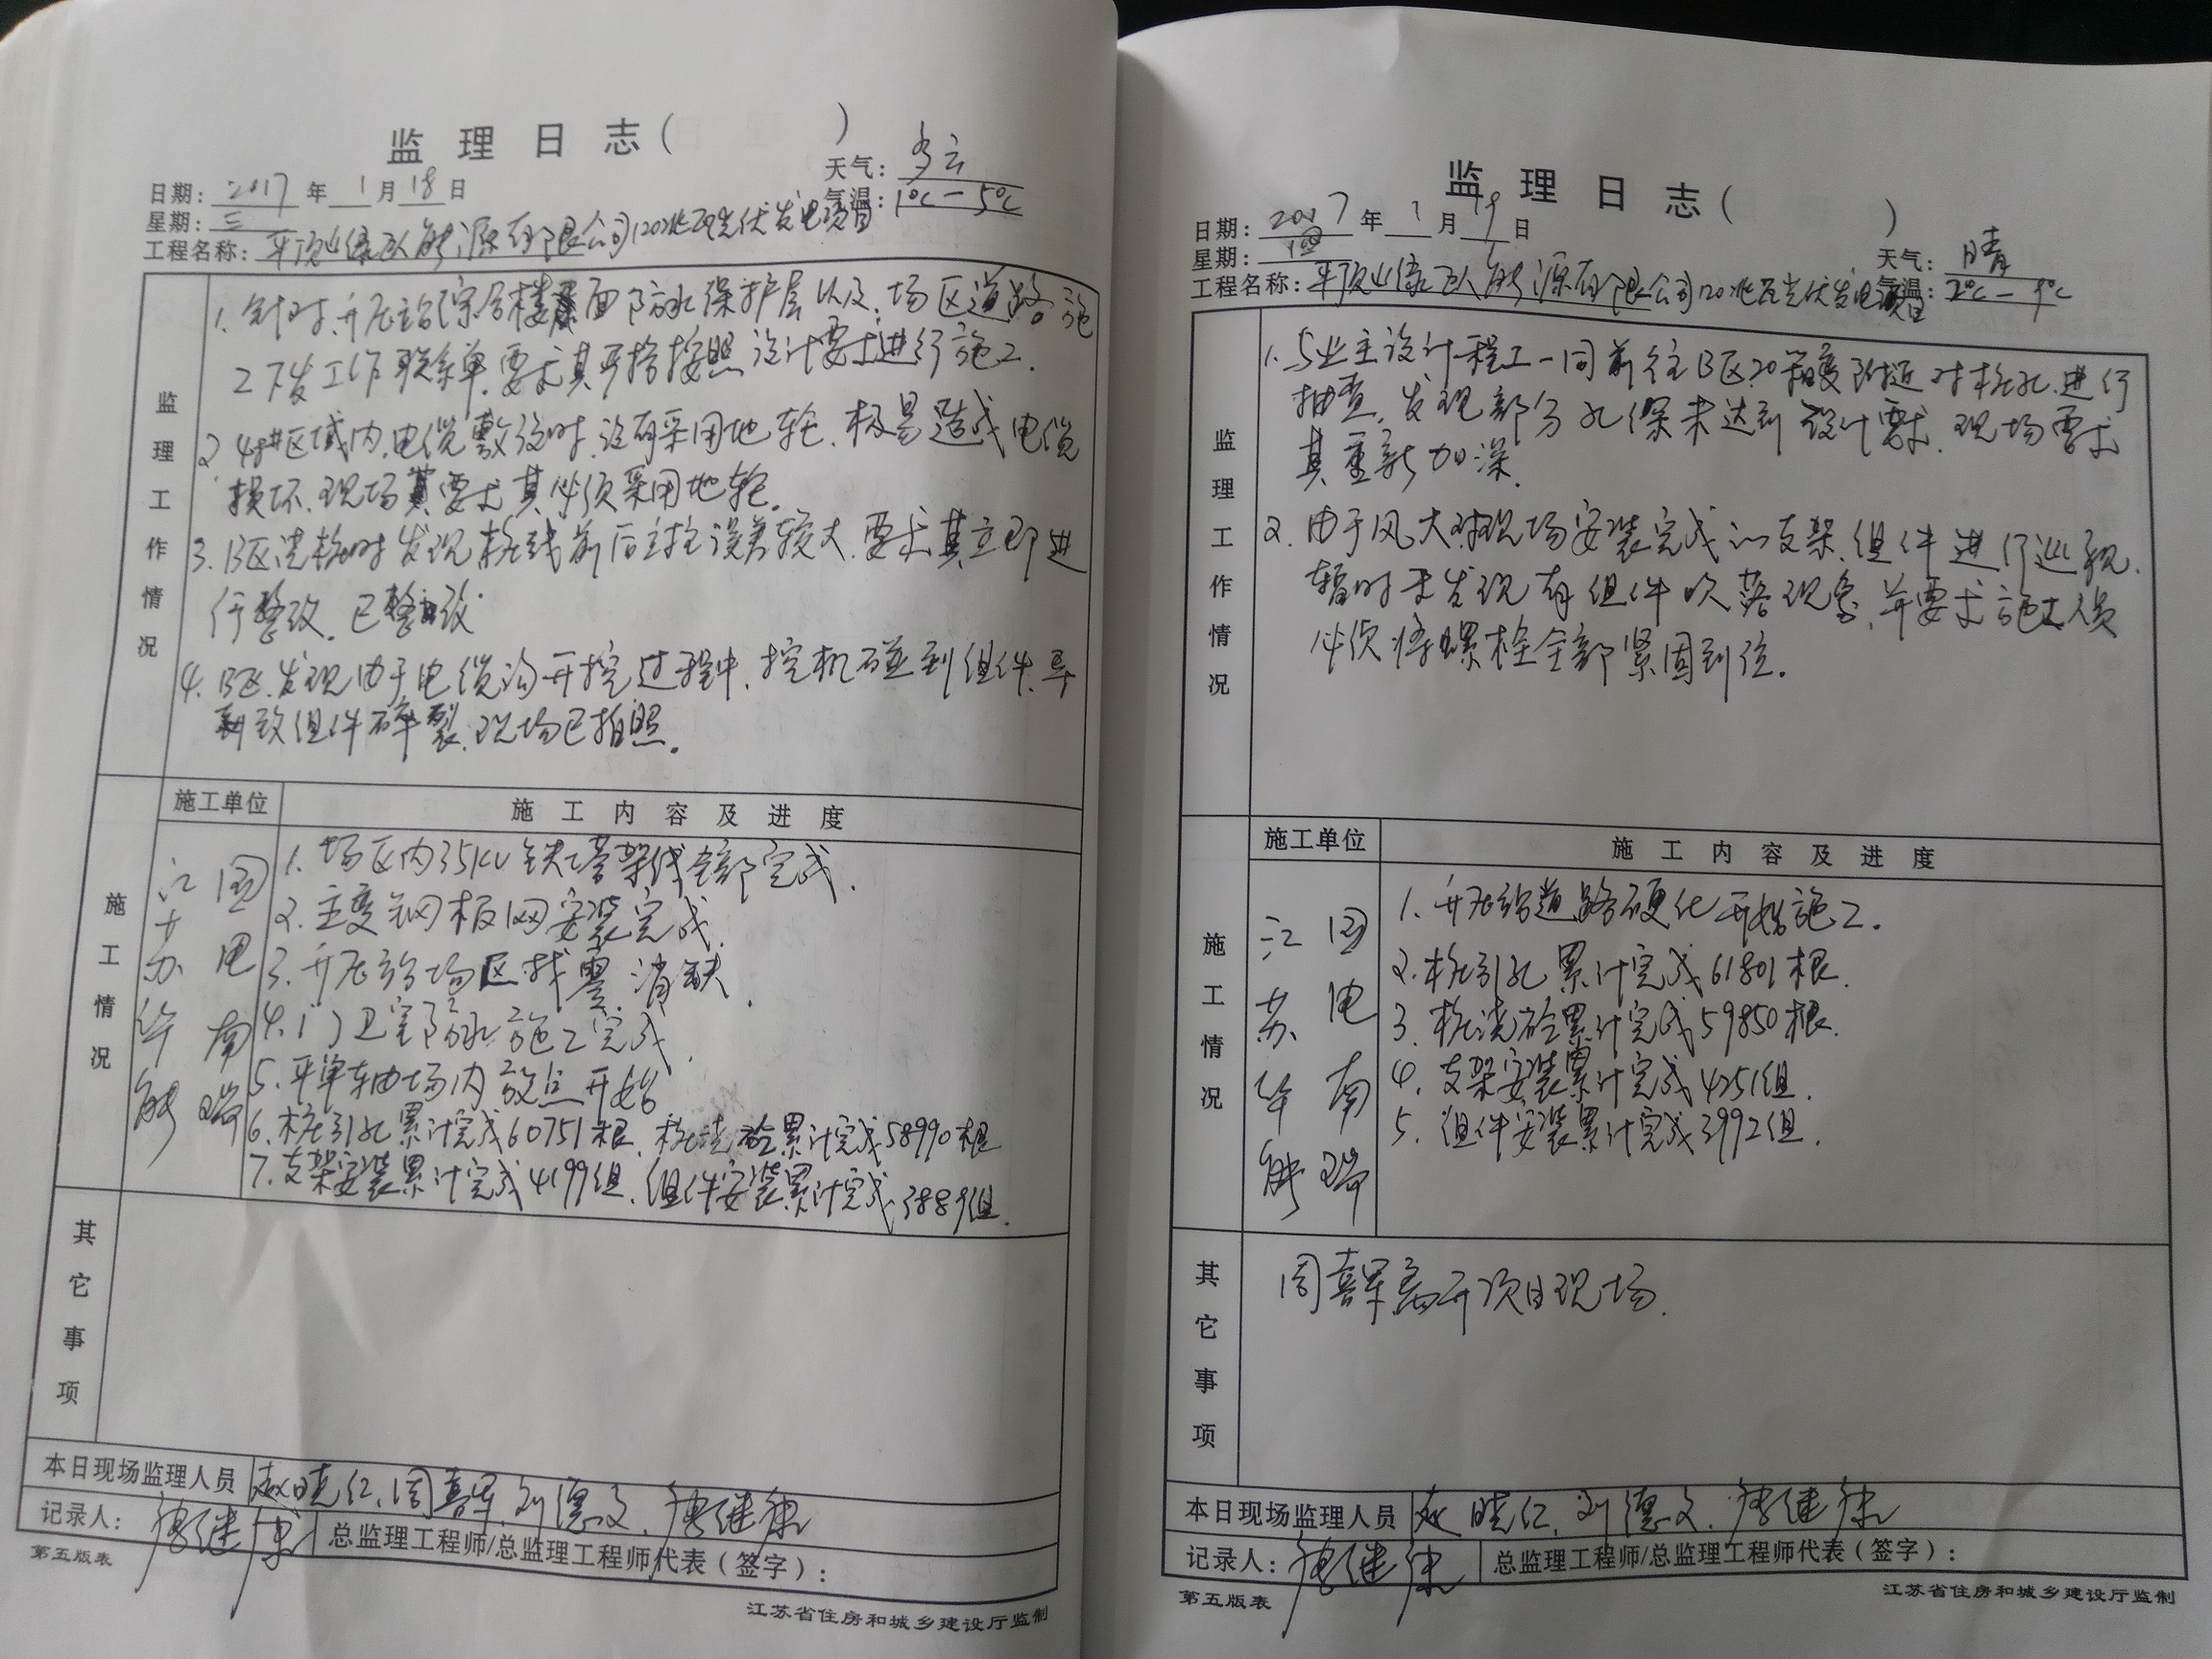 监理日志（ ）
日期：2017年1月18日
天气：多云
星期：三
气温：1℃－5℃
工程名称：平顶山绿巨人能源有限公司120兆瓦光伏发电项目
监理工作情况
1. 针对升压站综合楼屋面防水保护层以及场区道路施
工下发工作联系单，要求其严格按照设计要求进行施工.
2. 4#区域内，电缆敷设时，没有采用地轮，极易造成电缆
损坏，现场要求其必须采用地轮.
3. B区浇桩时发现桩线前后立柱误差较大，要求其立即进
行整改，已整改
4. B区发现由于电缆沟开挖过程中，挖机碰到组件，导
致组件碎裂，现场已拍照。
施工单位
施工内容及进度
施工情况
江苏华能
国电南瑞
1. 场区内35KV铁塔架线全部完成.
2. 主变钢板网安装完成.
3. 升压站场区找零，消缺.
4. 门卫室防水施工完成.
5. 平单轴场内放点开始
6. 桩引孔累计完成60751根，桩浇砼累计完成58990根
7. 支架安装累计完成4199组，组件安装累计完成3889组.
其它事项
本日现场监理人员 赵晓仁、周喜军、刘德文、唐继康
记录人：唐继康
总监理工程师/总监理工程师代表（签字）：
第五版表
江苏省住房和城乡建设厅监制
监理日志（ ）
日期：2017年1月19日
天气：晴
星期：四
气温：2℃－9℃
工程名称：平顶山绿巨人能源有限公司120兆瓦光伏发电项目
监理工作情况
1. 与业主设计程工一同前往B区20箱变附近对桩孔进行
抽查，发现部分孔深未达到设计要求，现场要求
其重新加深.
2. 由于风大对现场安装完成的支架、组件进行巡视，
暂时未发现有组件吹落现象，并要求施工人员
必须将螺栓全部紧固到位。
施工单位
施工内容及进度
施工情况
江苏华能
国电南瑞
1. 升压站道路硬化开始施工。
2. 桩引孔累计完成61801根.
3. 桩浇砼累计完成59850根.
4. 支架安装累计完成4251组.
5. 组件安装累计完成3992组.
其它事项
周喜军离开项目现场.
本日现场监理人员 赵晓仁、刘德文、唐继康
记录人：唐继康
总监理工程师/总监理工程师代表（签字）：
第五版表
江苏省住房和城乡建设厅监制